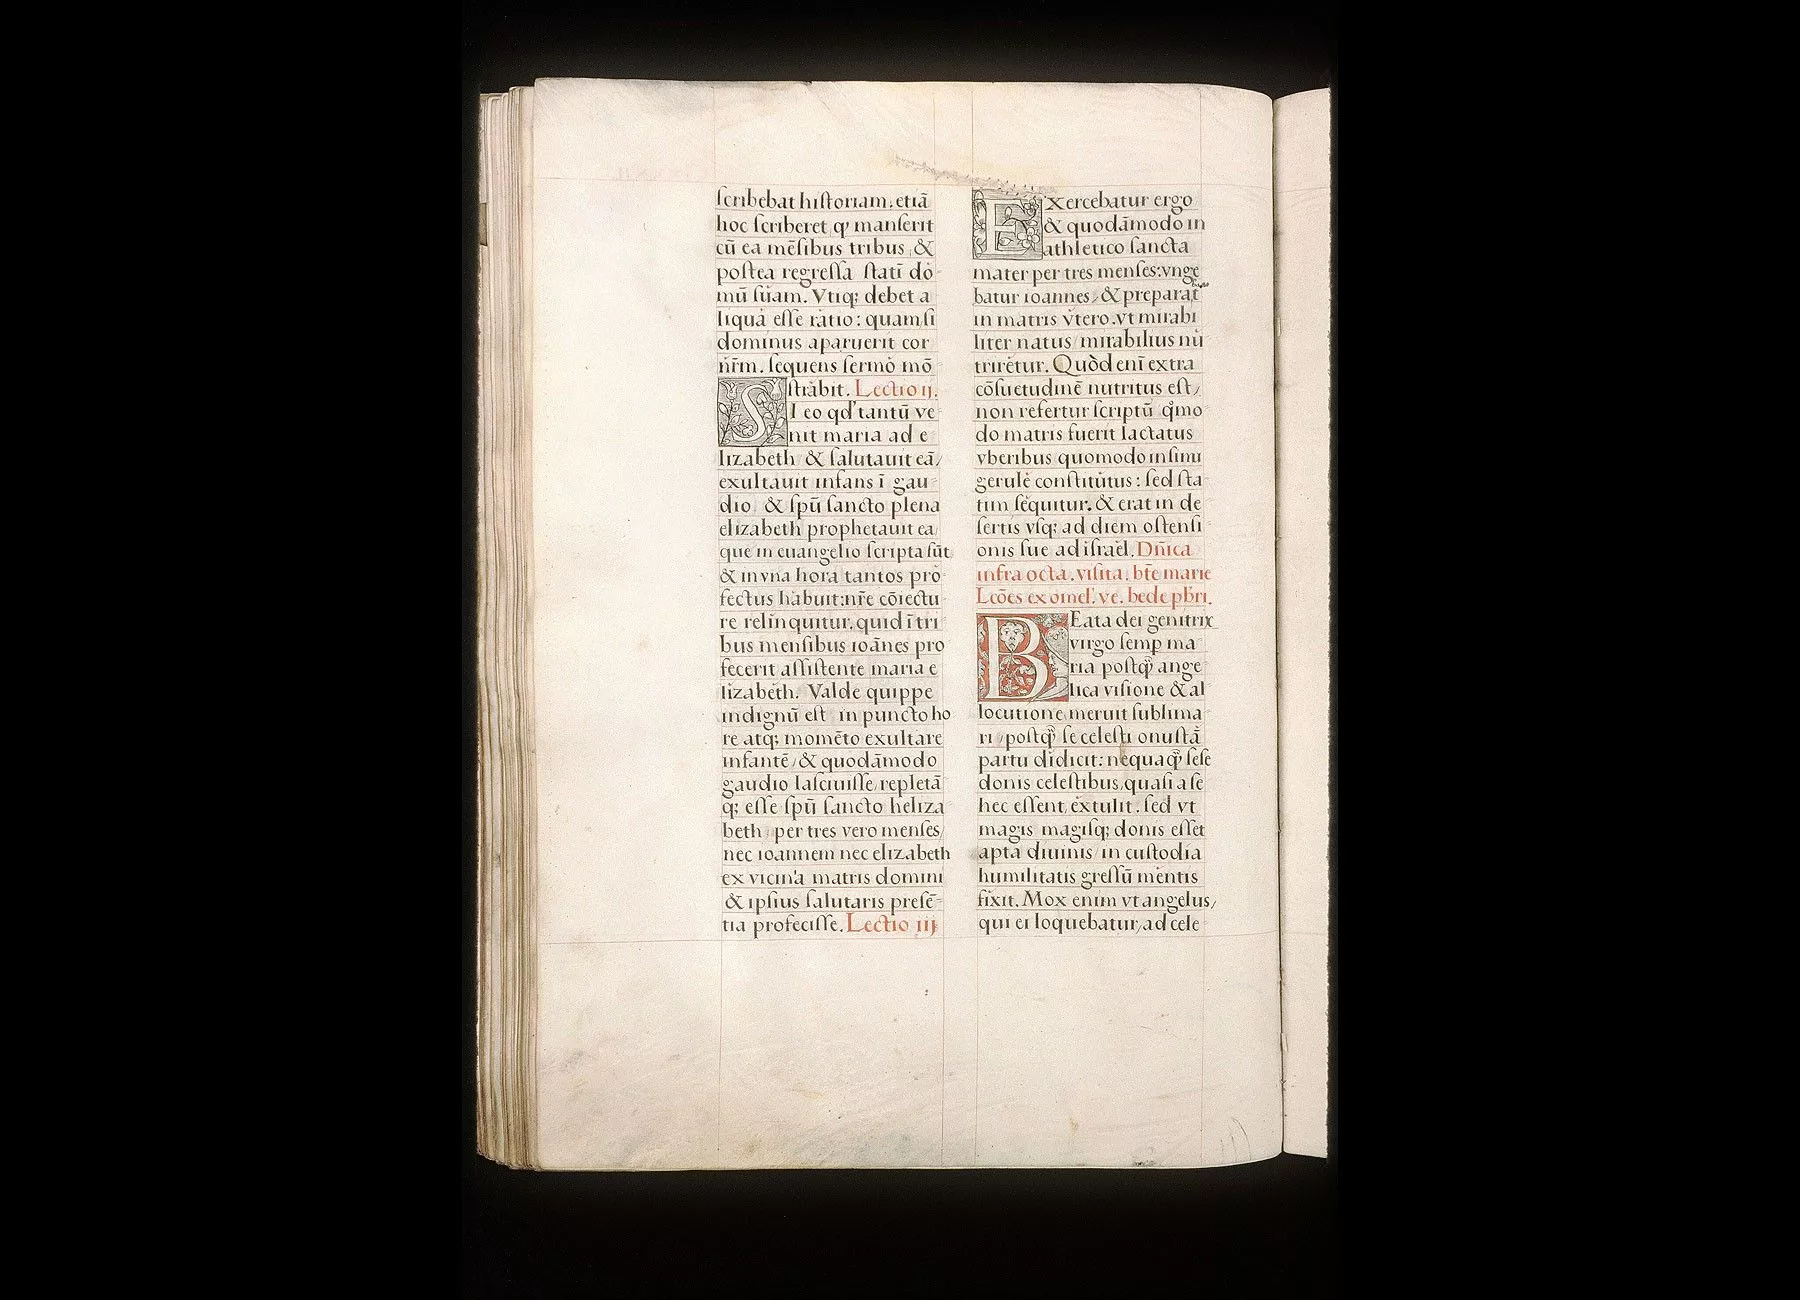 ſcribebat hiſtoriam. etiā
hoc ſcriberet qꝰ manſerit
cū ea mēſibus tribus, &
poſtea regreſſa ſtatī do-
mū ſuam. Vtiqꝫ debet a
liqua eſſe ratio: quam ſi
dominus aparuerit cor
nr̄m. ſequens ſermo mō
ſtrabit. Lectio ij.
SI eo qd' tantū ve-
nit maria ad e
lizabeth & ſalutauit eā,
exultauit infans ī gau-
dio & ſpū ſancto plena
elizabeth prophetauit ea
que in euangelio ſcripta ſūt
& in vna hora tantos pro-
fectus habuit: nr̄e cōiectu-
re relinquitur. quid ī tri
bus menſibus ioānes pro
fecerit aſſiſtente maria e
lizabeth. Valde quippe
indignū eſt in puncto ho
re atqꝫ momēto exultare
infantē, & quodāmodo
gaudio laſciuiſſe, repletā
qꝫ eſſe ſpū ſancto heliza-
beth, per tres vero menſes,
nec ioannem nec elizabeth
ex vicina matris domini
& ipſius ſalutaris preſē-
tia profeciſſe. Lectio iij
EXercebatur ergo
& quodāmodo in
athletico ſancta
mater per tres menſes: vnge
batur ioannes, & preparat
in matris vtero. vt mirabi
liter natus, mirabilius nu
triretur. Quod eni extra
cōſuetudinē nutritus eſt,
non refertur ſcriptū qͦmo-
do matris fuerit lactatus
vberibus quomodo in ſinu
gerule conſtitutus: ſed ſta-
tim ſequitur. & erat in de
ſertis vſqꝫ ad diem oſtenſi-
onis ſue ad iſrael. Dn̄ica
infra octa. viſita. bt̄e marie
Lcōes ex omel'. ve. bede pb̄ri.
BEata dei genitrix
virgo ſemp ma-
ria poſtqͣ̄ ange-
lica viſione & al
locutione meruit ſublima-
ri, poſtqͣ̄ ſe celeſti onuſtā
partu didicit: nequaqͣ̄ ſeſe
donis celeſtibus, quaſi a ſe
hec eſſent, extulit. ſed vt
magis magiſqꝫ donis eſſet
apta diuinis, in cuſtodia
humilitatis greſſū mentis
fixit. Mox enim vt angelus,
qui ei loquebatur, ad cele-